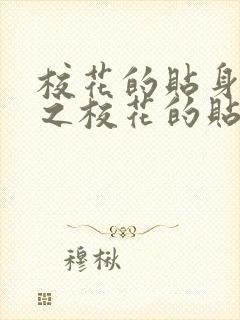 校花的貼身
之校花的貼
穆楸